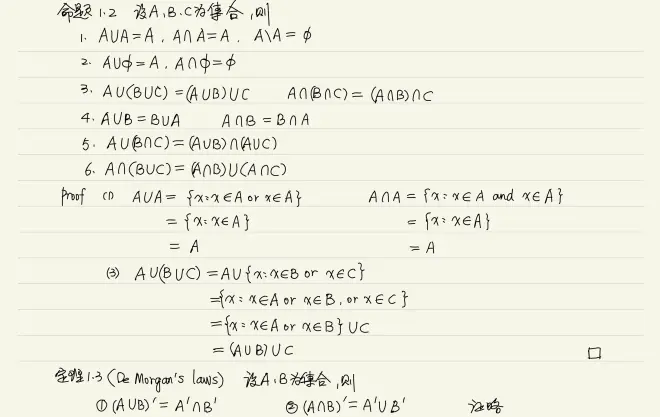 命题1.2 设A,B,C为集合,则
1. A∪A=A, A∩A=A, A\A=∅
2. A∪∅=A, A∩∅=∅
3. A∪(B∪C)=(A∪B)∪C A∩(B∩C)=(A∩B)∩C
4. A∪B=B∪A A∩B=B∩A
5. A∪(B∩C)=(A∪B)∩(A∪C)
6. A∩(B∪C)=(A∩B)∪(A∩C)
Proof (1) A∪A={x:x∈A or x∈A} A∩A={x:x∈A and x∈A}
={x:x∈A} ={x:x∈A}
=A =A
(3) A∪(B∪C)=A∪{x:x∈B or x∈C}
={x:x∈A or x∈B, or x∈C}
={x:x∈A or x∈B}∪C
=(A∪B)∪C □
定理1.3 (De Morgan's laws) 设A,B为集合,则
①(A∪B)'=A'∩B' ②(A∩B)'=A'∪B' 证略